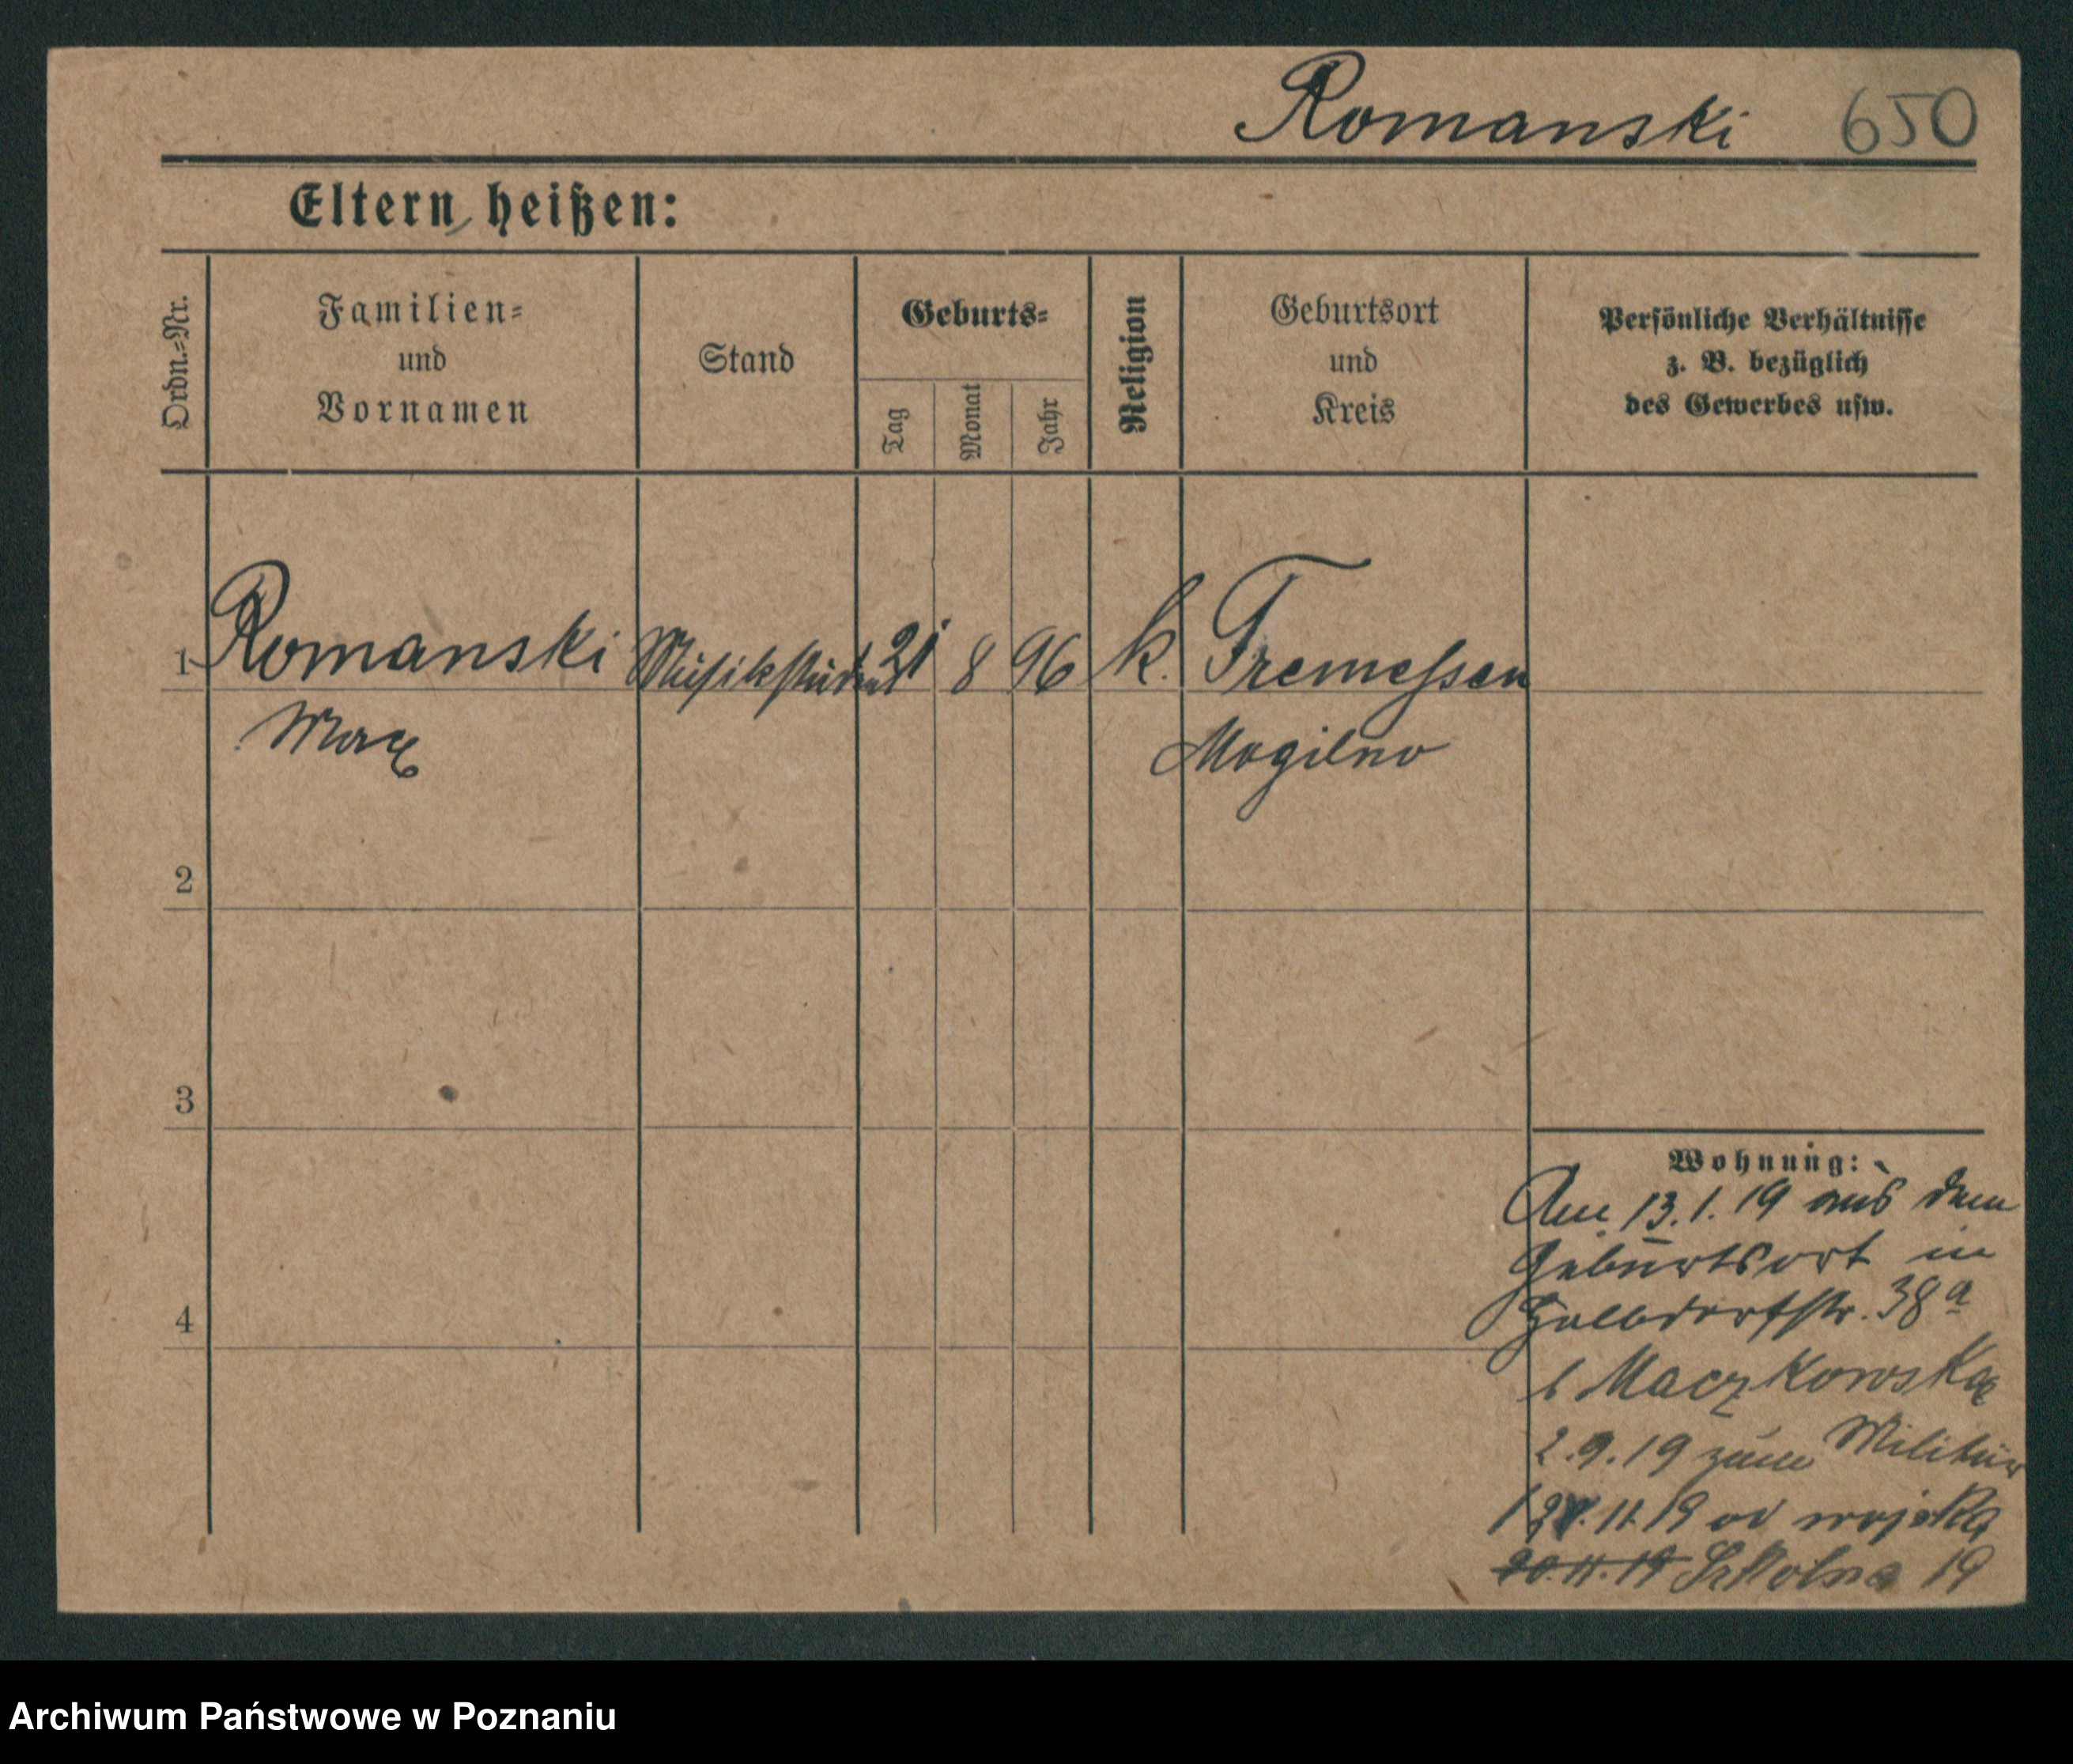 Romanski 650
Eltern heißen:
Ordn.-Nr.
Familien-
und
Vornamen
Stand
Geburts-
Tag
Monat
Jahr
Religion
Geburtsort
und
Kreis
Persönliche Verhältnisse
z. B. bezüglich
des Gewerbes usw.
1 Romanski Musikstudent 21 8 96 k. Tremessen
Max Mogilno
2
3
4
Wohnung:
Am 13.1.19 aus dem
Geburtsort in
Halbdorfstr. 38a
b Maczkowska
2.9.19 zum Militär
11.19 od wojska
20.11.19 Szkolna 19
Archiwum Państwowe w Poznaniu